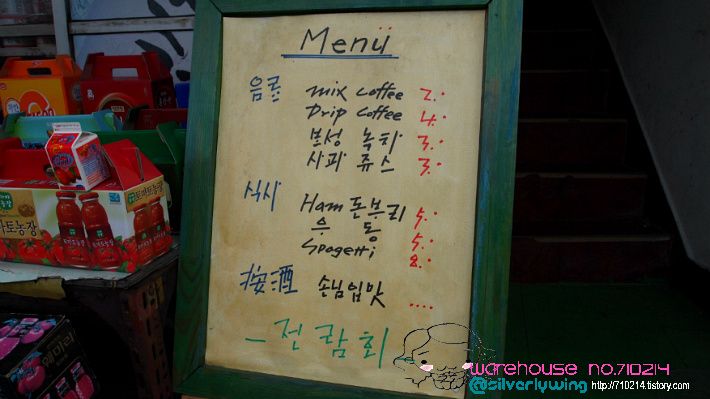 Menü
음료 mix coffee 2.
Drip coffee 4.
보성 녹차 3.
사과 쥬스 3.
식사 Ham 돈부리 5.
우 동 5.
Spogetti 8.
按酒 손님입맛 ....
- 전람회
토마토농장
마토농장
warehouse no.710214
@silverlywing http://710214.tistory.com